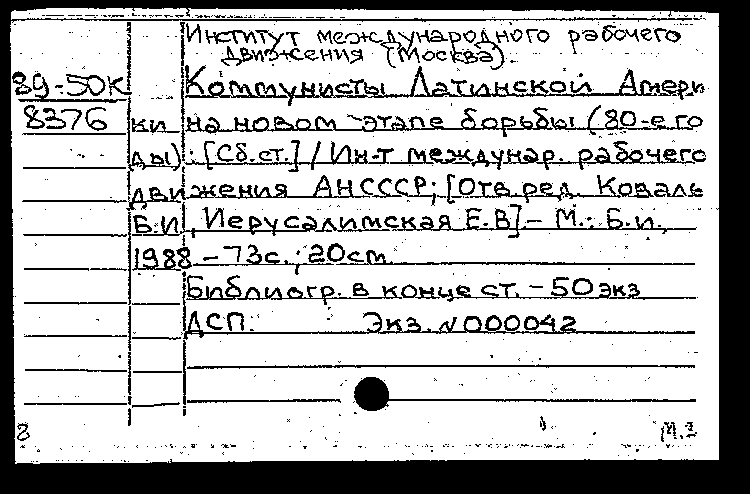 Институт международного рабочего
движения (Москва).
89-50к Коммунисты Латинской Амери
8376 ки на новом этапе борьбы (80-е го
ды) : [Сб.ст.] / Ин-т междунар. рабочего
движения АНСССР; [Отв.ред. Коваль
Б.И., Иерусалимская Е.В] - М.: Б.и.,
1988 - 73с.; 20см.
Библиогр. в конце ст. - 50экз
ДСП. Экз. N000042
8 М.З